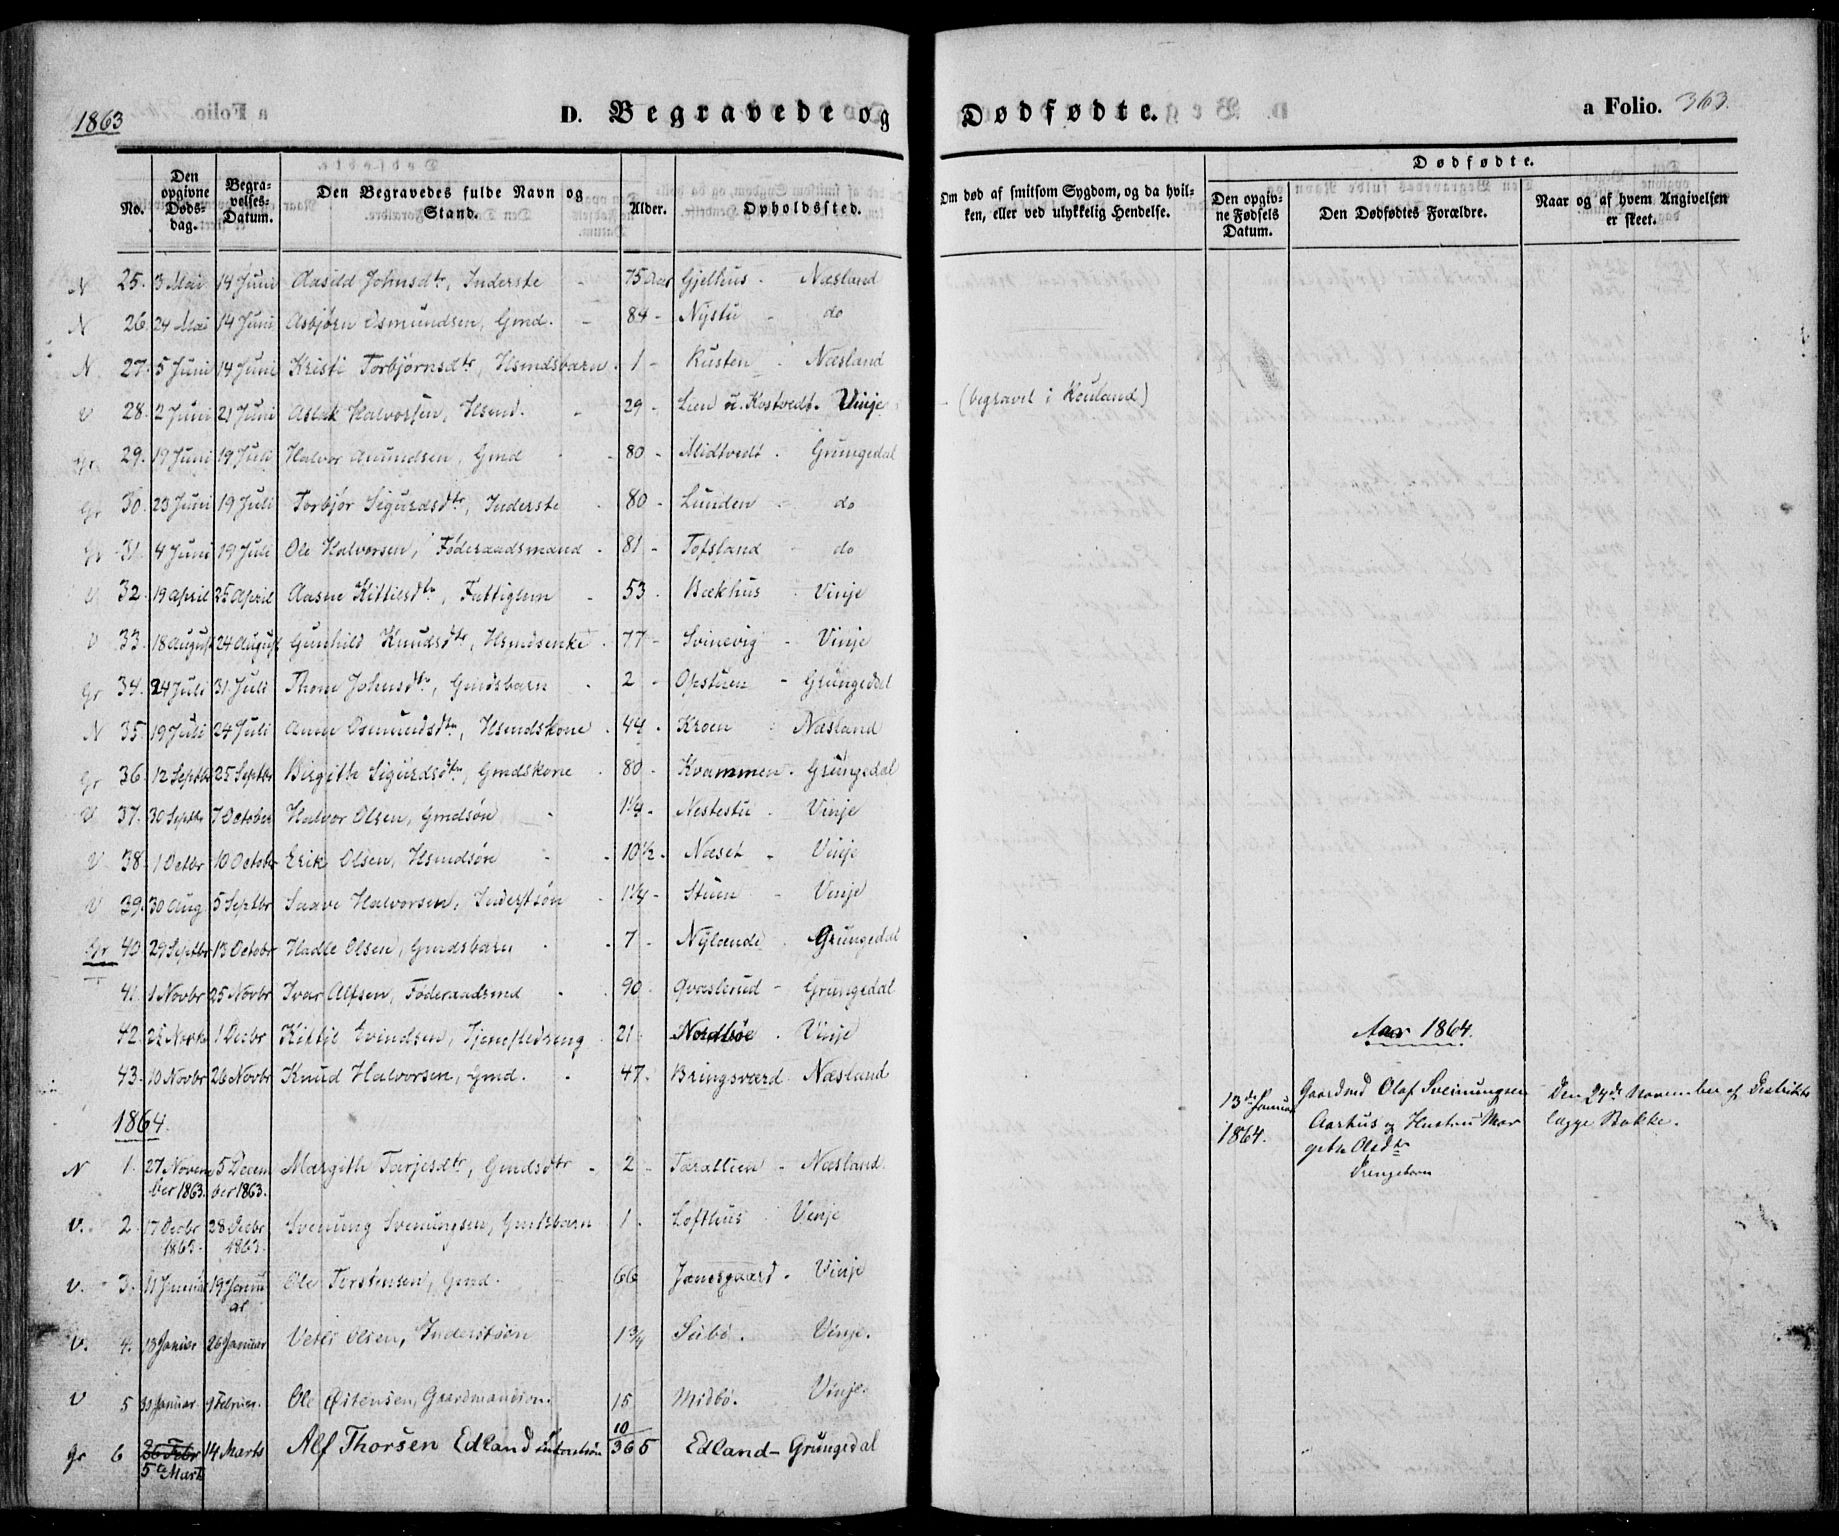 1863
D. Begravede og Dødfødte.
a Folio. 363.
No.
Den opgivne Døds-dag.
Begra-velses-Datum.
Den Begravedes fulde Navn og Stand.
Alder.
Opholdssted.
Om død af smitsom Sygdom, og da hvil-ken, eller ved ulykkelig Hendelse.
Dødfødte.
Den opgiv-ne Fødsels Datum.
Den Dødfødtes Forældre.
Naar og af hvem Angivelsen er skeet.
N 25. 3 Mai 14 Juni Aasild Johnsdtr, Inderste - 75 Aar Gjelhus. Næsland
N 26. 24 Mai 14 Juni Asbjørn Osmundsen, Gmd. - 84 - Nystu - do
N. 27. 5 Juni 14 Juni Kristi Torbjørnsdtr, Hsmdsbarn. 1 - Rusten Næsland
V 28. 2 Juni 21 Juni Aslak Halvorsen, Hsmd. - 29 - Lien u. Kostvedt. Vinje - (begravet i Rauland)
Gr. 29. 19 Juni 19 Juli Halvor Aanundsen, Gmd - 80 - Midtvedt. Grungedal
Gr 30. 23 Juni 19 Juli Torbjør Sigurdsdtr, Inderste - 80 - Lunden - do
Gr 31. 4 Juni 19 Juli Ole Halvorsen, Føderaadsmand. 81 - Tofsland - do
V 32. 19 April 25 April Aasne Kittilsdtr, Fattiglem - 53. Bækhus Vinje
V 33. 18 August 24 August Gunhild Knudsdtr, Hsmdsenke. 77 - Svinevig - Vinje
Gr 34. 24 Juli 31 Juli Thone Johnsdtr, Gmdsbarn - 2 - Opstuen - Grungedal
N 35. 19 Juli 24 Juli Anne Osmundsdtr, Hsmdskone. 44. Kroen Næsland
Gr 36. 12 Septbr 25 Septbr Birgith Sigurdsdtr, Gmdskone. 80 - Kvammen. Grungedal
V 37. 30 Septbr 7 October Halvor Olsen, Gmdsøn - 1 1/4 - Nestestu. Vinje
V 38. 1 Octbr 10 Octobr Erik Olsen, Hsmdsøn - 10 1/2. Næset - Vinje
V 39. 30 Aug 5 Septbr Saave Halvorsen, Inderstsøn. 1 1/4 - Stuen - Vinje
Gr 40. 29 Septbr 13 Octobr Hadle Olsen, Gmdsbarn - 7 - Nylænde. Grungedal
41. 1 Novbr 25 Novbr Ivar Alfsen, Føderaadsmd - 90 - Qvaslerud - Grungedal
42. 22 Novbr 1 Decbr Kittil Evindsen, Tjenestedreng. 21. Nordbøe. Vinje
43. 10 Novbr 26 Novbr Knud Halvorsen, Gmd. - 47. Bringsværd. Næsland
1864.
N 1. 27 November 1863. 5 December 1863. Margith Tarjesdtr, Gmdsdtr - 2 - Taraldlien - Næsland.
V. 2. 17 Decbr 1863. 28 Decbr 1863. Svenung Svenungsen, Gmdsbarn 1. Lofthus Vinje
V. 3. 11 Januar 19 Januar Ole Torstensen, Gmd. 66 Jamsgaard. Vinje
V. 4. 13 Januar 26 Januar Vetli Olsen, Inderstsøn 1 3/4 Seibø. Vinje.
V 5 30 Januar. 9 Februar. Ole Østensen, Gaardmandsøn. 15 Midbø. Vinje.
Gr 6 26 Febr 5te Marts 14 Marts Alf Thorsen Edland inderstsøn 10/365 Edland - Grungedal
Aar 1864.
13de Januar 1864.
Gaardmd Olaf Sveinungsen
Aarhus og Hustru Mar
gethe Olsdtr
Drengebarn
Den 24de November af Distrikts
lægge Bakke.